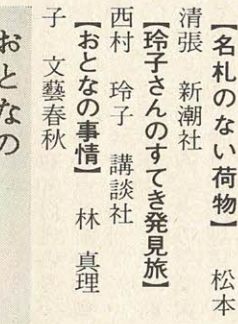 【名札のない荷物】 松本
清張 新潮社
【玲子さんのすてき発見旅】
西村 玲子 講談社
【おとなの事情】 林 真理
子 文藝春秋
おとなの